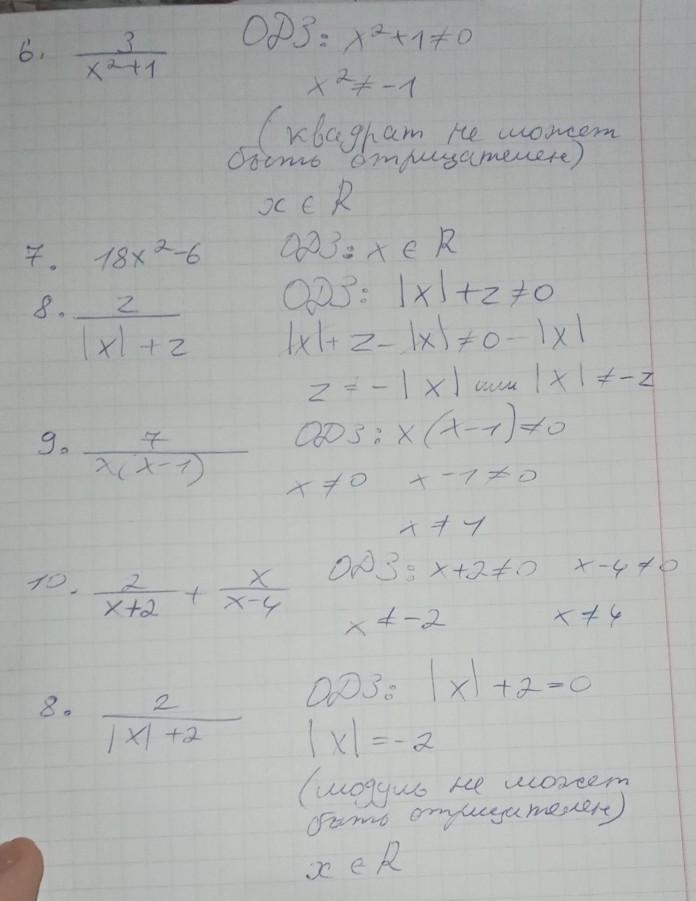 6. 3/(x²+1) ОДЗ: x²+1≠0
x²≠-1
(квадрат не может
быть отрицателен)
x ∈ R
7. 18x²-6 ОДЗ: x ∈ R
8. z/(|x|+z) ОДЗ: |x|+z≠0
|x|+z-|x|≠0-|x|
z≠-|x| или |x|≠-z
9. 7/(x(x-1)) ОДЗ: x(x-1)≠0
x≠0 x-1≠0
x≠1
10. 2/(x+2) + x/(x-4) ОДЗ: x+2≠0 x-4≠0
x≠-2 x≠4
8. 2/(|x|+2) ОДЗ: |x|+2=0
|x|=-2
(модуль не может
быть отрицателен)
x ∈ R